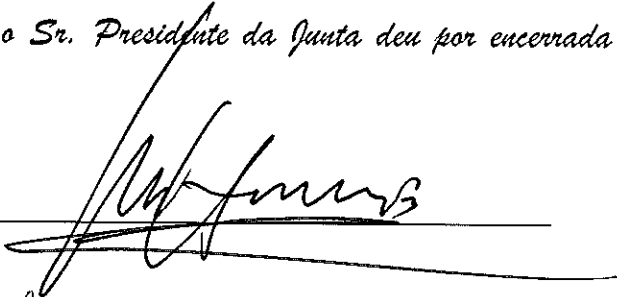 o Sr. Presidente da Junta deu por encerrada